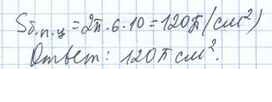 Sб.п.ц = 2π·6·10 = 120π (см²)
Ответ: 120π см².